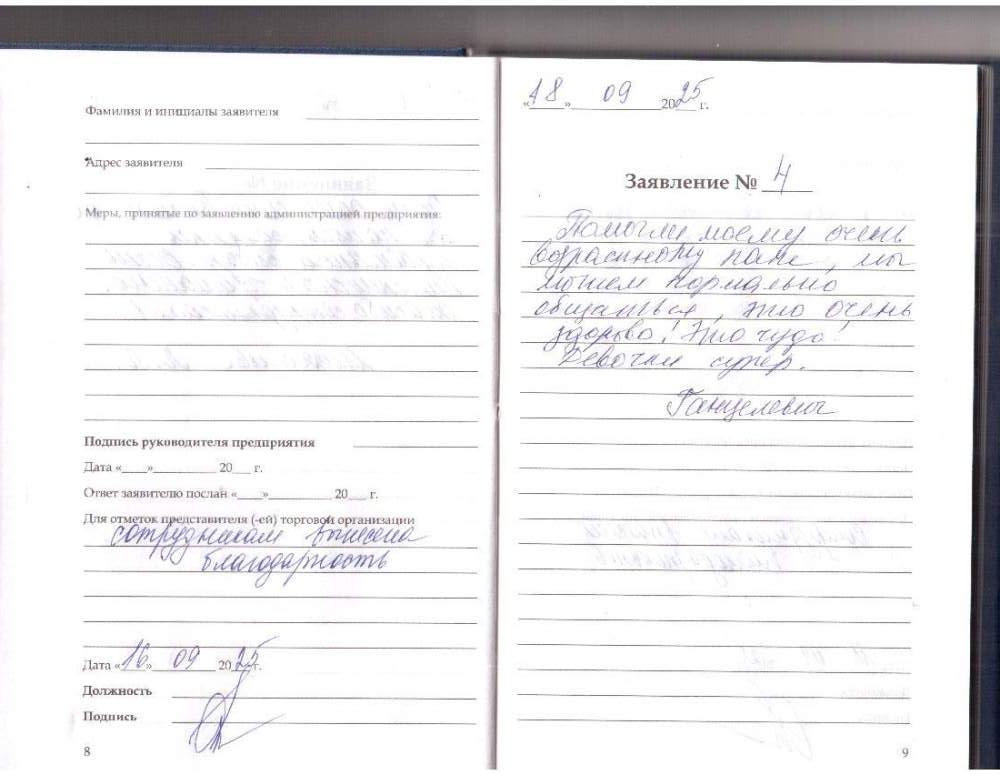 Фамилия и инициалы заявителя
Адрес заявителя
Меры, принятые по заявлению администрацией предприятия:
Подпись руководителя предприятия
Дата «___»__________ 20___ г.
Ответ заявителю послан «____»__________ 20___ г.
Для отметок представителя (-ей) торговой организации
сотрудникам вынесена
благодарность
Дата «16» 09 2025 г.
Должность
Подпись
8
«18» 09 2025 г.
Заявление № 4
Помогли моему очень
возрасному папе, мы
можем нормально
общаться, это очень
здорово! Это чудо!
Девочки супер.
Ганцелевич
9